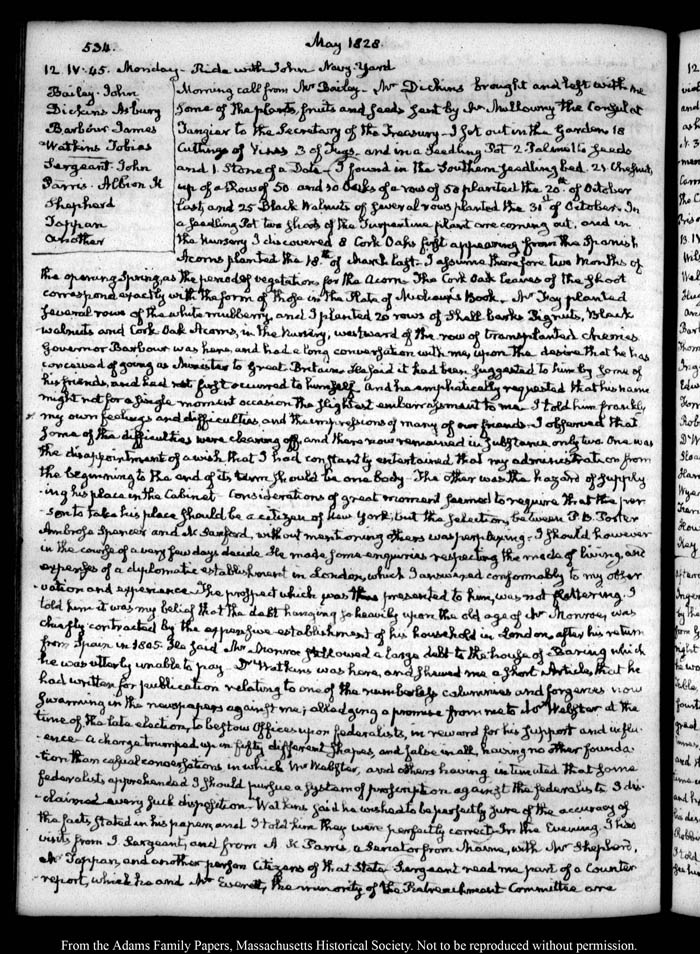 534.
May 1828.
12. IV: 45. Monday. Ride with John Navy-Yard
Bailey. John
Dickins Asbury
Barbour James
Watkins Tobias
Sergeant. John
Parris. Albion K
Shepherd
Tappan
another
Morning call from Mr Bailey. Mr Dickins brought and left with me
some of the plants, fruits and seeds sent by Mr Mullowny the Consul at
Tangier to the Secretary of the Treasury. I set out in the Garden 18
Cuttings of Vines 3 of Figs, and in a Seedling Pot 2 Palmetto seeds
and 1 Stone of a Date. I found in the Southern seedling bed 21 Chesnuts,
up of a Row of 50 and 30 Oaks of a row of 50 planted the 20th of October
last, and 25 Black Walnuts of several rows planted the 31st of October. In
a seedling Pot two shoots of the Turpentine plant are coming out, and in
the Nursery I discovered 8 Cork Oaks first appearing from the Spanish
Acorns planted the 18th of March last. I assume therefore two Months of
the opening Spring, as the period of vegetation for the Acorn. The Cork Oak leaves of the shoot
correspond exactly with the form of those in the Plate of Michaux's Book. Mr Foy planted
several rows of the white mulberry, and I planted 20 rows of Shell barks Pignuts, Black
walnuts and Cork Oak Acorns, in the Nursery, westward of the row of transplanted Cherries
Governor Barbour was here, and had a long conversation with me, upon the desire that he has
conceived of going as Minister to Great Britain. He said it had been suggested to him by some of
his friends, and had not first occurred to himself, and he emphatically requested that his name
might not for a single moment occasion the slightest embarrassment to me. I told him frankly
my own feelings and difficulties, and the impressions of many of our friends. I observed that
some of the difficulties were clearing off, and there now remained in substance only two. One was
the disappointment of a wish that I had constantly entertained that my administration from
the beginning to the end of its term should be one body. The other was the hazard of supply
-ing his place in the Cabinet. Considerations of great moment seemed to require that the per
-son to take his place should be a citizen of New York, but the selection between P. B. Porter
Ambrose Spencer and N. Sanford, without mentioning others was perplexing. I should however
in the course of a very few days decide. He made some enquiries respecting the mode of living, and
expenses of a diplomatic establishment in London, which I answered conformably to my obser
-vation and experience. The prospect which was thus presented to him, was not flattering. I
told him it was my belief that the debt hanging so heavily upon the old age of Mr Monroe, was
chiefly contracted by the expensive establishment of his household in London, after his return
from Spain in 1805. He said Mr Monroe still owed a large debt to the house of Baring which
he was utterly unable to pay. Dr Watkins was here, and shewed me a short Article, that he
had written for publication relating to one of the numberless calumnies and forgeries now
swarming in the newspapers against me; alledging a promise from me to Mr Webster at the
time of the late election, to bestow Offices upon federalists, in reward for his support and influ
-ence. A charge trumped up in fifty different shapes, and false in all, having no other founda
-tion than casual conversations in which Mr Webster, and others having intimated that some
federalists apprehended I should pursue a system of proscription against the federalists I dis
-claimed every such disposition. Watkins said he wished to be perfectly sure of the accuracy of
the facts stated in his paper, and I told him they were perfectly correct. In the Evening I had
visits from J Sergeant, and from A. K Parris, a Senator from Maine, with Mr Shepherd,
Mr Tappan, and another person Citizens of that State. Sergeant read me part of a Counter
-report, which he and Mr Everett, the minority of the Retrenchment Committee are
From the Adams Family Papers, Massachusetts Historical Society. Not to be reproduced without permission.